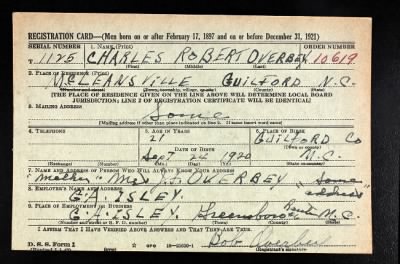 REGISTRATION CARD—(Men born on or after February 17, 1897 and on or before December 31, 1921)
SERIAL NUMBER 1. NAME (Print) ORDER NUMBER
T 1125 CHARLES ROBERT OVERBEY 10619
(First) (Middle) (Last)
2. PLACE OF RESIDENCE (Print)
McLEANSVILLE GUILFORD N.C.
(Number and street) (Town, township, village, or city) (County) (State)
[THE PLACE OF RESIDENCE GIVEN ON THE LINE ABOVE WILL DETERMINE LOCAL BOARD
JURISDICTION; LINE 2 OF REGISTRATION CERTIFICATE WILL BE IDENTICAL]
3. MAILING ADDRESS
Same
[Mailing address if other than place indicated on line 2. If same insert word same]
4. TELEPHONE 5. AGE IN YEARS 6. PLACE OF BIRTH
21 GUILFORD Co
DATE OF BIRTH (Town or county)
Sept 24 1920 N.C.
(Exchange) (Number) (Mo.) (Day) (Yr.) (State or country)
7. NAME AND ADDRESS OF PERSON WHO WILL ALWAYS KNOW YOUR ADDRESS
mother - Mrs OVERBEY "Same address"
8. EMPLOYER'S NAME AND ADDRESS
G.A. ISLEY
9. PLACE OF EMPLOYMENT OR BUSINESS
G.A. ISLEY. Greensboro Route N.C.
(Number and street or R. F. D. number) (Town) (County) (State)
I AFFIRM THAT I HAVE VERIFIED ABOVE ANSWERS AND THAT THEY ARE TRUE.
D. S. S. Form 1 GPO 16—21630-1 Bob Overbey
(Registrant's signature)